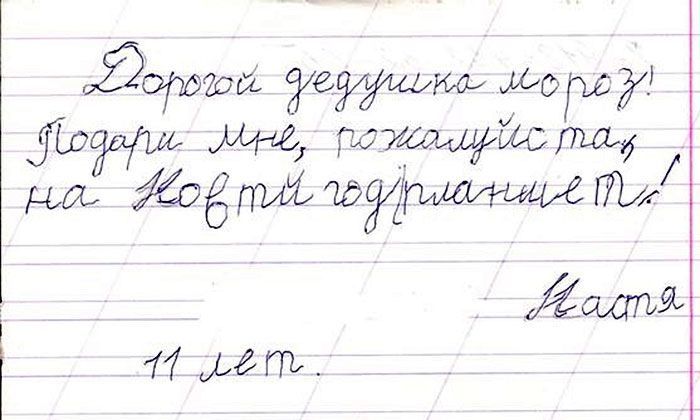 Дорогой дедушка мороз!
Подари мне, пожалуйста,
на Новый год планшет!
Настя
11 лет.